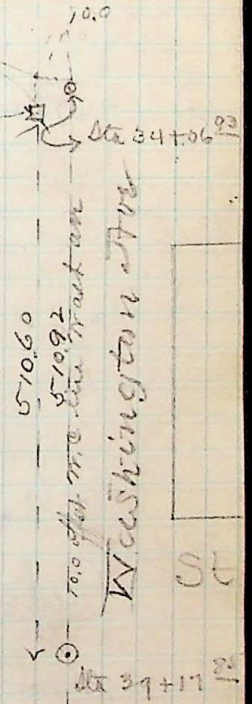 10.0
Sta 34+06 93
510.60
510.92
10.0 offset M.C. line Wash ave
Washington Ave
St
Sta 39+17 85